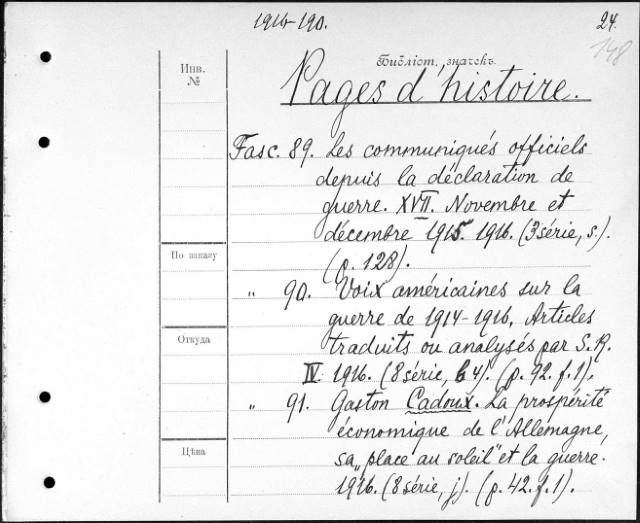 1916-190.
24.
148
Инв.
№
Библіот. значекъ.
Pages d'histoire.
Fasc. 89. Les communiqués officiels
depuis la déclaration de
guerre. XVII. Novembre et
décembre 1915. 1916. (3 série, s.).
(p. 128).
По заказу
" 90. Voix américaines sur la
guerre de 1914-1916. Articles
Откуда
traduits ou analysés par S. R.
IV. 1916. (8 série, b4). (p. 92. f. 1).
" 91. Gaston Cadoux. La prospérité
économique de l'Allemagne,
Цѣна
sa „place au soleil" et la guerre.
1916. (8 série, j). (p. 42. f. 1).